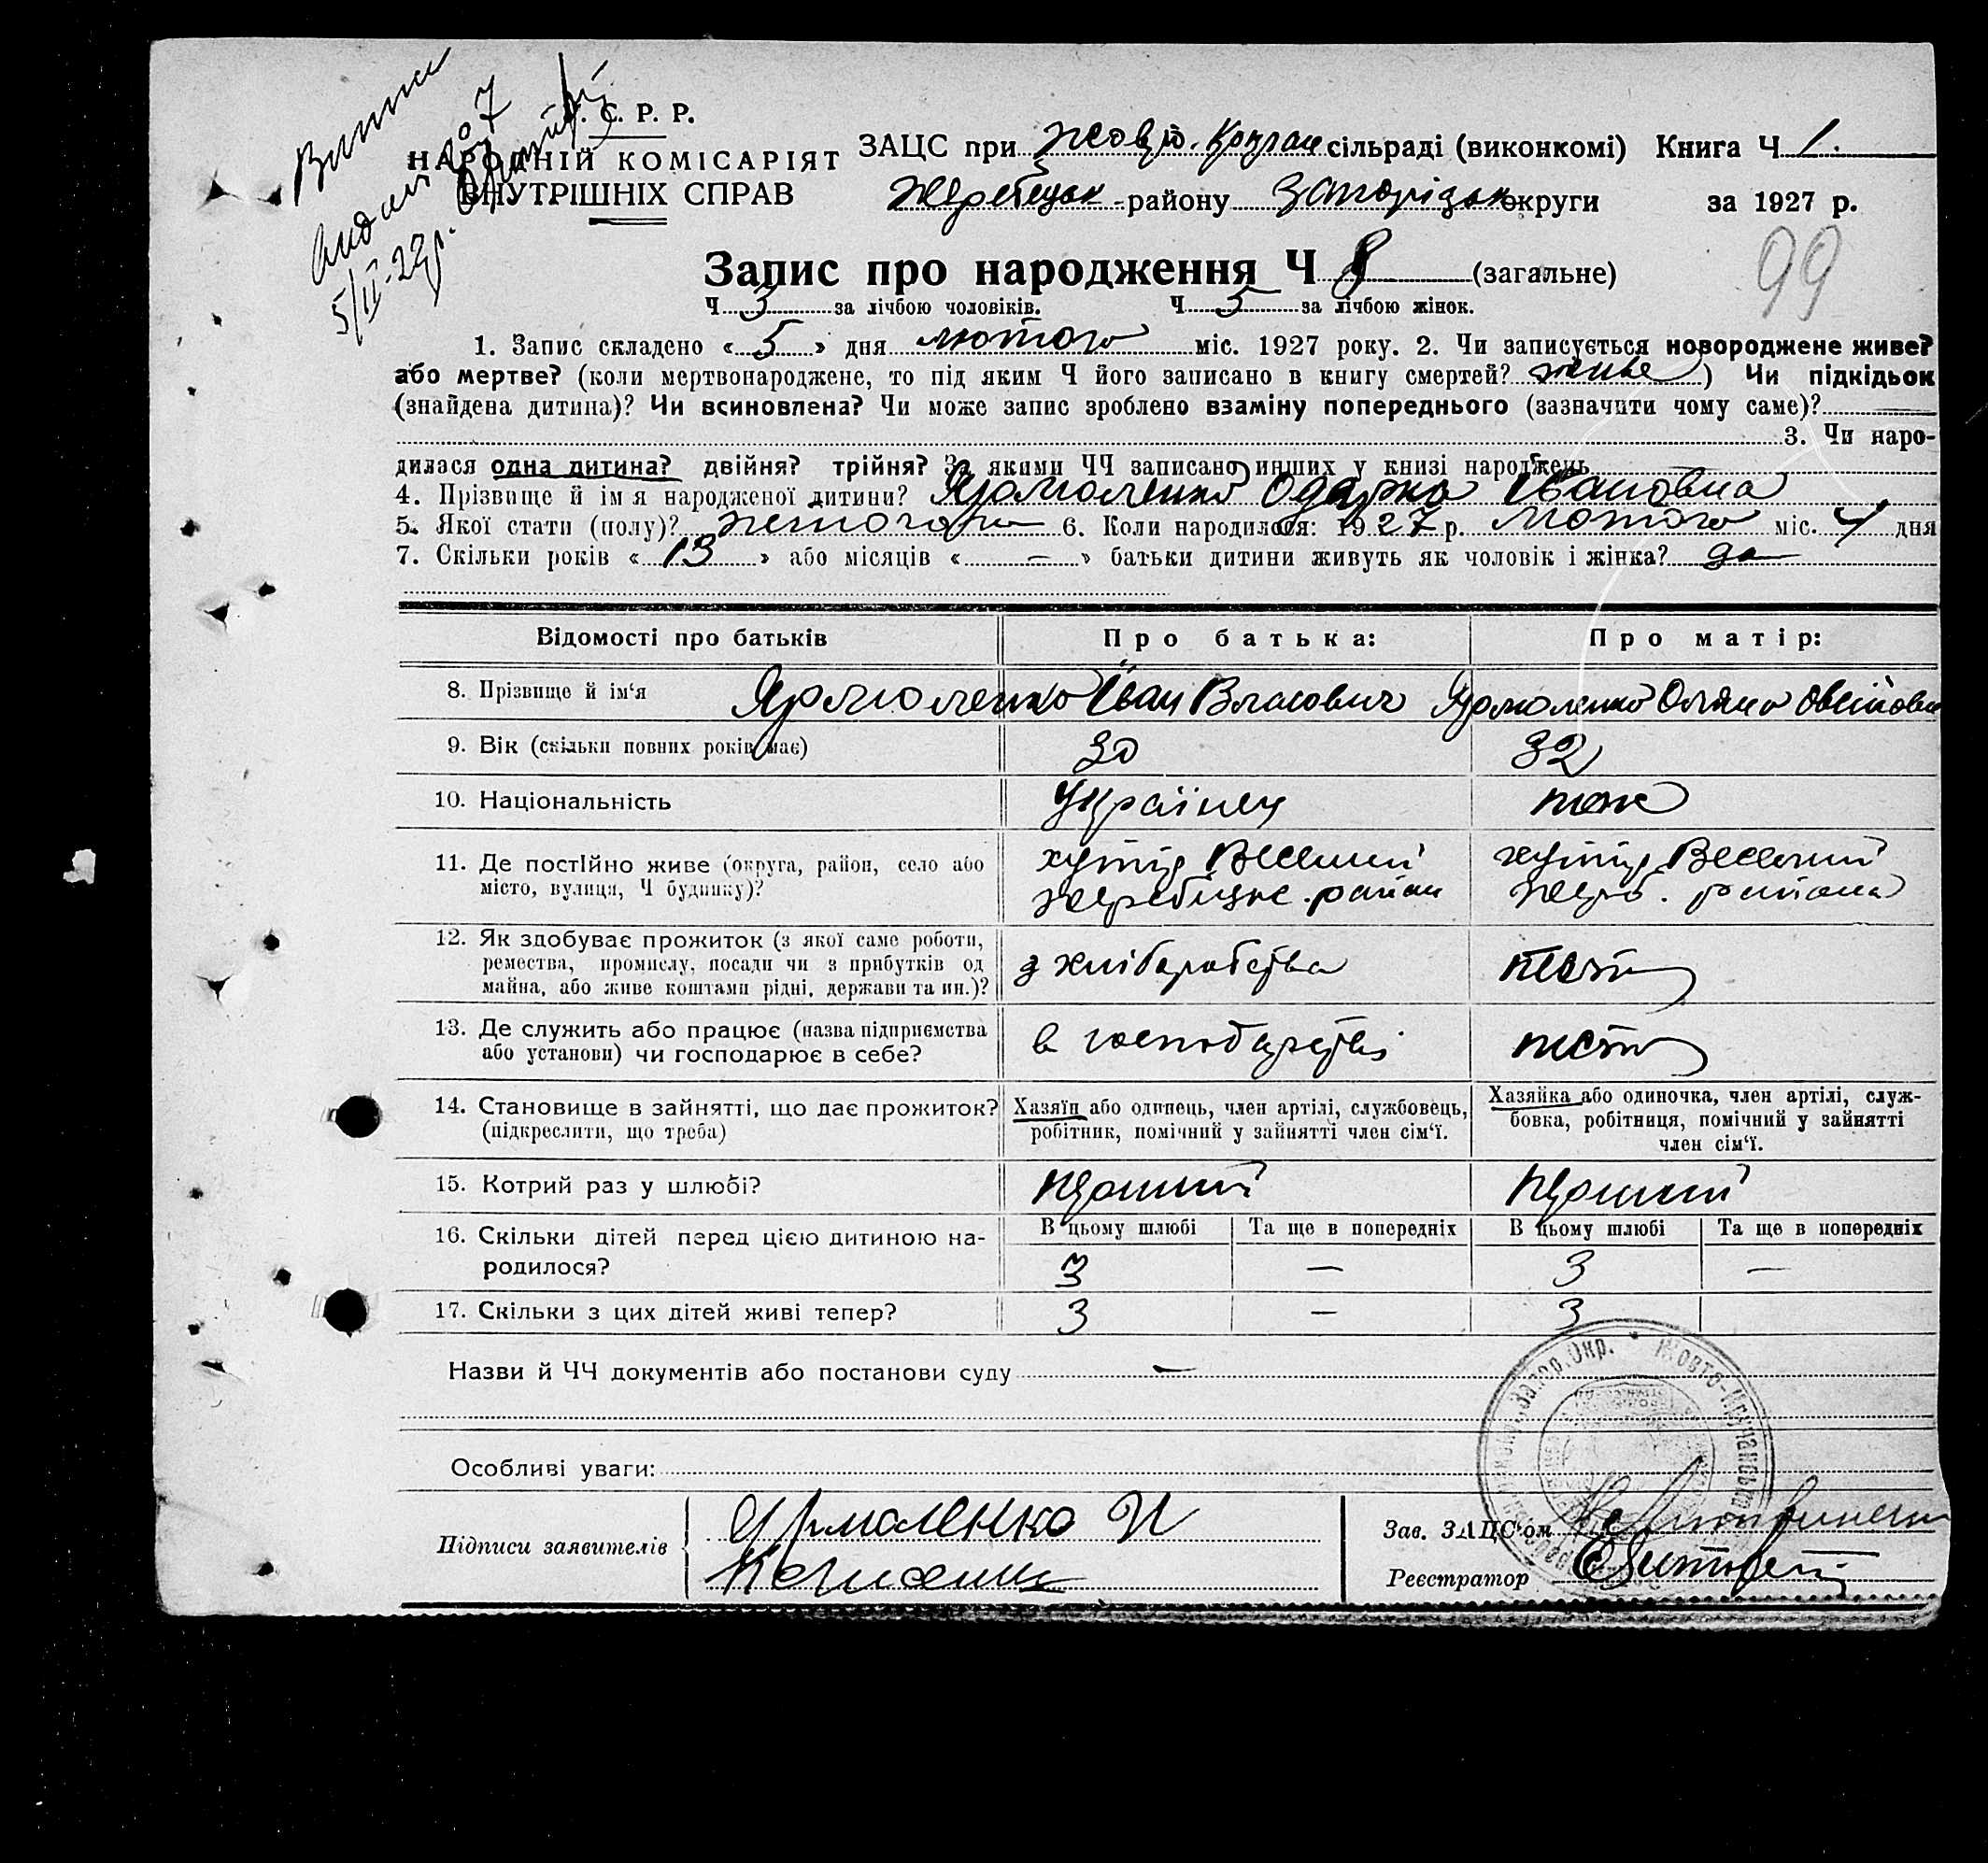 Випис
видан
5/II-27р.
С. Р. Р.
НАРОДНІЙ КОМІСАРІЯТ
ВНУТРІШНІХ СПРАВ
ЗАЦС при Жовто-Кручан сільраді (виконкомі) Книга Ч 1.
Жеребецьк району Запорізьк округи за 1927 р.
99
Запис про народження Ч 8 (загальне)
Ч 3 за лічбою чоловіків. Ч 5 за лічбою жінок.
1. Запис складено «5» дня лютого міс. 1927 року. 2. Чи записується новороджене живе?
або мертве? (коли мертвонароджене, то під яким Ч його записано в книгу смертей? живе) Чи підкідьок
(знайдена дитина)? Чи всиновлена? Чи може запис зроблено взаміну попереднього (зазначити чому саме)?
3. Чи наро-
дилася одна дитина? двійня? трійня? За якими ЧЧ записано инших у книзі народжень
4. Прізвище й ім'я народженої дитини? Ярмоленко Одарка Івановна
5. Якої стати (полу)? 6. Коли народилося: 1927 р. лютого міс. 4 дня
7. Скільки років «13» або місяців «—» батьки дитини живуть як чоловік і жінка? да
Відомості про батьків Про батька: Про матір:
8. Прізвище й ім'я Ярмоленко Іван Власович Ярмоленко Оляна
9. Вік (скільки повних років має) 30 32
10. Національність Українец тож
11. Де постійно живе (округа, район, село або хутір Веселий хутір Веселий
місто, вулиця, Ч будинку)? Жеребецьк. район Жереб. района
12. Як здобуває прожиток (з якої саме роботи,
ремества, промислу, посади чи з прибутків од з хліборобства тож
майна, або живе коштами рідні, держави та ин.)?
13. Де служить або працює (назва підприємства в господарстві тож
або установи) чи господарює в себе?
14. Становище в зайнятті, що дає прожиток? Хазяїн або одинець, член артілі, службовець, Хазяйка або одиночка, член артілі, служ-
(підкреслити, що треба) робітник, помічний у зайнятті член сім'ї. бовка, робітниця, помічний у зайнятті
член сім'ї.
15. Котрий раз у шлюбі? перший перший
16. Скільки дітей перед цією дитиною на- В цьому шлюбі Та ще в попередніх В цьому шлюбі Та ще в попередніх
родилося? 3 — 3 —
17. Скільки з цих дітей живі тепер? 3 — 3
Назви й ЧЧ документів або постанови суду —
Особливі уваги:
Підписи заявителів Ярмоленко И
Зав. ЗАЦС'ом
Реєстратор
Запор. Окр. * Жовто-Кручанська